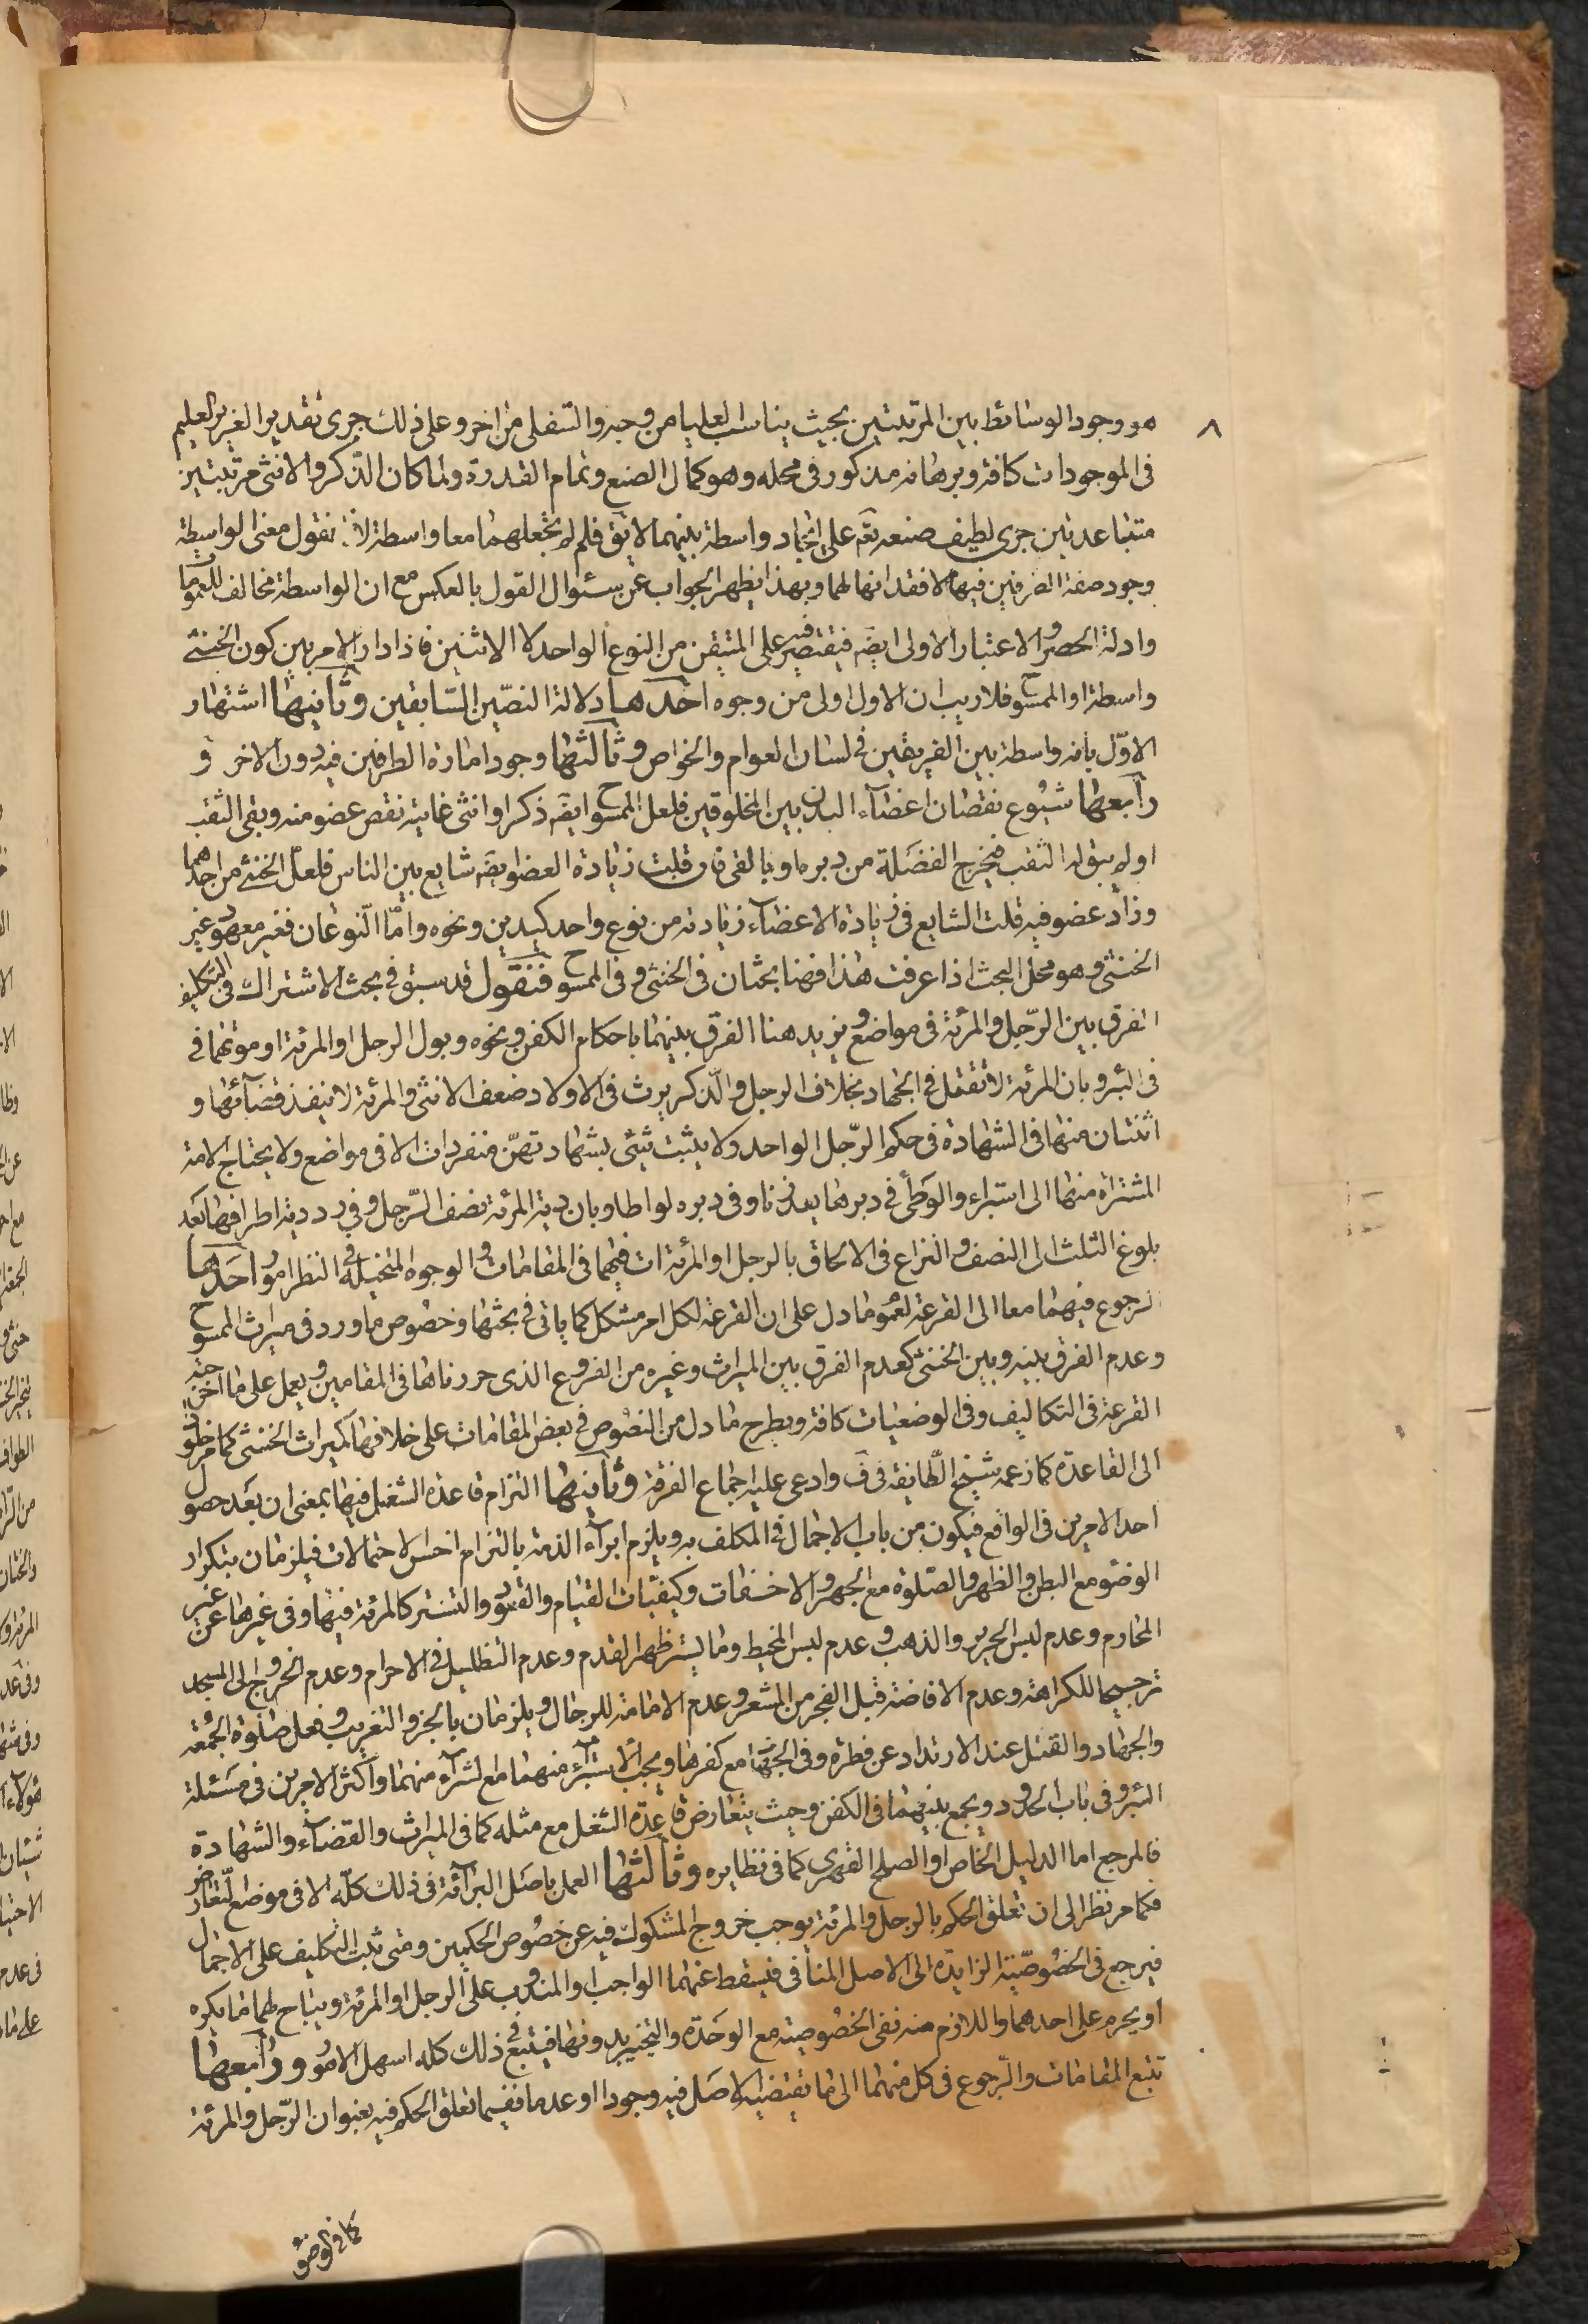 ٨
هو وجود الوسائط بين المرتبتين بحيث يناسب العليا من وجه والسفلى من اخر وعلى ذلك جرى تقدير العزيز العليم
فى الموجودات كافة وبرهانه مذكور فى محله وهو كمال الصنع وتمام القدرة ولما كان الذكر والانثى مرتبتين
متباعدتين جرى لطيف صنعه تعَ على ايجاد واسطة بينهما لا يقَ فلم لم يجعلهما معا واسطة لانا نقول معنى الواسطة
وجود صفة الطرفين فيها لا فقدانها لهما وبهذا يظهر الجواب عن سئوال القول بالعكس مع ان الواسطة مخالف للعموما
وادلة الحصر والاعتبار الاولى ايضَ فيقتصر فيه على المتيقن من النوع الواحد لا الاثنين فاذا دار الامر بين كون الخنثى
واسطة او الممسوح فلا ريب ان الاول اولى من وجوه احدها دلالة النصّين السّابقين وثانيها اشتهار
الاوّل بانه واسطة بين الفريقين فى لسان العوام والخواص وثالثها وجود امارة الطرفين فيه دون الاخر و
رابعها شيوع نقصان اعضآء البدن بين المخلوقين فلعل الممسوح ايضَ ذكر او انثى غايته نقص عضو منه وبقى الثقب
او لم يبق له الثقب فيخرج الفضلة من دبره او بالقى فان قلت زيادة العضو ايضَ شايع بين الناس فلعل الخنثى من احدهما
وزاد عضو فيه قلت الشايع فى زيادة الاعضآء زيادته من نوع واحد كيدين ونحوه وامّا النّوعان فغير معهود غير
الخنثى وهو محل البحث اذا عرفت هذا فهنا بحثان فى الخنثى وفى الممسوح فنقول قد سبق فى بحث الاشتراك فى التكليف
الفرق بين الرّجل والمرئة فى مواضع ونزيد هنا الفرق بينهما باحكام الكفن ونحوه وبول الرجل او المرئة او موتهما فى
فى البئر وبان المرئة لا تقتل فى الجهاد بخلاف الرجل والذكر يرث فى الاولاد ضعف الانثى والمرئة لا ينفذ قضآئها و
اثنتان منها فى الشهادة فى حكم الرّجل الواحد ولا يثبت شئى بشهادتهنّ منفردات الا فى مواضع ولا يحتاج الامة
المشتراة منهما الى استبراء والوطى فى دبرها يعد زنا وفى دبره لواطا وبان دية المرئة نصف الرّجل وفى رد دية اطرافها بعد
بلوغ الثلث الى النصف والنزاع فى الالحاق بالرجل او المرئة ات فيهما فى المقامات والوجوه المتخيلة فى النظر امور احدها
الرجوع فيهما معا الى القرعة لعموم ما دل على ان القرعة لكل امر مشكل كما ياتى فى بحثها وخصوص ما ورد فى ميراث الممسوح
وعدم الفرق بينه وبين الخنثى كعدم الفرق بين الميراث وغيره من الفروع الذى حررناها فى المقامين ويعمل على ما اخرجته
القرعة فى التكاليف وفى الوضعيات كافة ويطرح ما دل من النصوص فى بعض المقامات على خلافها كميراث الخنثى كما مر
الى القاعدة كما زعمه شيخ الطّايفة فى فَ وادعى عليه اجماع الفرقة وثانيها التزام قاعدة الشغل فيها بمعنى ان بعد حصول
احد الامرين فى الواقع فيكون من باب الاجمال فى المكلف به ويلزم ابرآء الذمة بالتزام اخس الاحتمالات فيلزمان بتكرار
الوضو مع البطن والظهر والصّلوة مع الجهر والاخفات وكيفيّات القيام والقعود والتستر كالمرئة فيها وفى غيرها عن غير
المحارم وعدم لبس الحرير والذهب وعدم لبس المخيط وما يستر ظهر القدم وعدم التظليل فى الاحرام وعدم الخروج الى المسجد
ترجيحا للكراهة وعدم الافاضة قبل الفجر من المشعر وعدم الامامة للرجال ويلزمان بالجز والتغريب وفعل صلوة الجمعة
والجهاد والقتل عند الارتداد عن فطرة وفى الجهاد مع كفرها ويجب الاستبرآء منهما مع الشرآء منهما واكثر الامرين فى مسئلة
البئر وفى باب الحدود ويجمع بينهما فى الكفن وحيث يتعارض قاعدة الشغل مع مثله كما فى الميراث والقضآء والشهادة
فالمرجع اما الدليل الخاص او الصلح القهرى كما فى نظايره وثالثها العمل باصل البرآئة فى ذلك كلّه الا فى موضع التّعارض
فكما مر نظرا الى ان تعلق الحكم بالرجل والمرئة يوجب خروج المشكوك فيه عن خصوص الحكمين ومتى ثبت التكليف على الاجمال
فيرجع فى الخصوصيّة الزايدة الى الاصل المنافى فيسقط عنهما الواجب والمندوب على الرجل او المرئة ويباح لهما ما يكره
او يحرم على احدهما واللازم منه نفى الخصوصية مع الوحدة والتخيير بدونها فيتبع فى ذلك كله اسهل الامور ورابعها
تتبع المقامات والرّجوع فى كل منهما الى ما يقتضيه الاصل فيه وجودا او عدما ففيما تعلق الحكم فيه بعنوان الرّجل والمرئة
كما فى الوضو